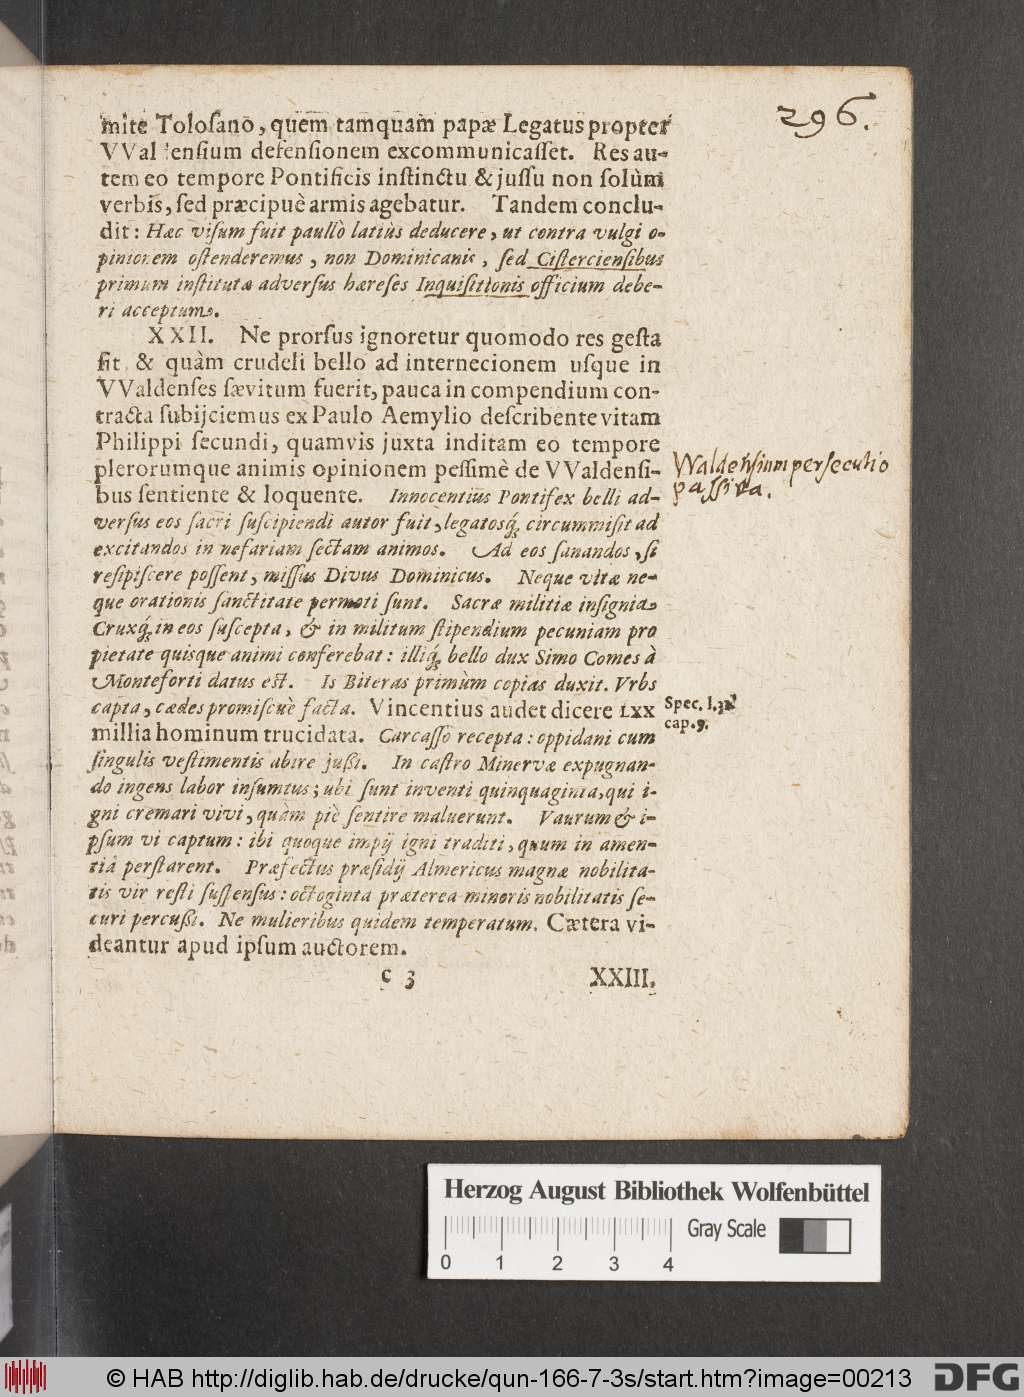 296.
mite Tolosano, quem tamquam papæ Legatus propter
VValdensium defensionem excommunicasset. Res au-
tem eo tempore Pontificis instinctu & jussu non solùm
verbis, sed præcipuè armis agebatur. Tandem conclu-
dit: Hæc visum fuit paullò latiùs deducere, ut contra vulgi o-
pinionem ostenderemus, non Dominicanis, sed Cisterciensibus
primum institutæ adversus hæreses Inquisitionis officium debe-
ri acceptum.
XXII. Ne prorsus ignoretur quomodo res gesta
sit, & quàm crudeli bello ad internecionem usque in
VValdenses sævitum fuerit, pauca in compendium con-
tracta subijciemus ex Paulo Aemylio describente vitam
Philippi secundi, quamvis juxta inditam eo tempore
plerorumque animis opinionem pessimè de VValdensi-
bus sentiente & loquente. Innocentius Pontifex belli ad-
versus eos sacri suscipiendi autor fuit, legatosq́; circummisit ad
excitandos in nefariam sectam animos. Ad eos sanandos, si
resipiscere possent, missus Divus Dominicus. Neque vitæ ne-
que orationis sanctitate permoti sunt. Sacræ militiæ insignia
Cruxq́; in eos suscepta, & in militum stipendium pecuniam pro
pietate quisque animi conferebat: illiq́; bello dux Simo Comes à
Monteforti datus est. Is Biteras primùm copias duxit. Vrbs
capta, cædes promiscuè facta. Vincentius audet dicere LXX
millia hominum trucidata. Carcasso recepta: oppidani cum
singulis vestimentis abire jussi. In castro Minervæ expugnan-
do ingens labor insumtus; ubi sunt inventi quinquaginta, qui i-
gni cremari vivi, quàm piè sentire maluerunt. Vaurum & i-
psum vi captum: ibi quoque impij igni traditi, quum in amen-
tiâ perstarent. Præfectus præsidij Almericus magnæ nobilita-
tis vir resti suspensus: octoginta præterea minoris nobilitatis se-
curi percussi. Ne mulieribus quidem temperatum. Cætera vi-
deantur apud ipsum auctorem.
c 3 XXIII.
Waldensium persecutio
passiva.
Spec. l.
cap. 9.
Herzog August Bibliothek Wolfenbüttel
Gray Scale
0 1 2 3 4
© HAB http://diglib.hab.de/drucke/qun-166-7-3s/start.htm?image=00213
DFG